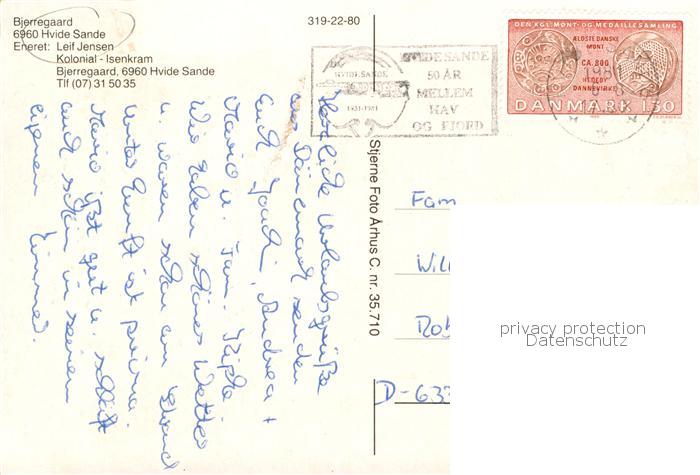 Bjerregaard
6960 Hvide Sande
Eneret: Leif Jensen
Kolonial - Isenkram
Bjerregaard, 6960 Hvide Sande
Tlf (07) 31 50 35
319-22-80
HVIDE SANDE
1931-1981
HVIDE SANDE
50 ÅR
MELLEM
HAV
OG FJORD
DEN KGL. MØNT- OG MEDAILLESAMLING
ÆLDSTE DANSKE
MØNT
CA. 800
HEDEBY
DANNEVIRKE
DANMARK 130
Stjerne Foto Århus C. nr. 35.710
Herzliche Urlaubsgrüße
aus Dänemark senden
Euch Joachi, Andrea +
Mario u. Fam.
Wir haben schönes Wetter
u. waren schon am Strand
Unterkunft ist prima.
Mario ißt gut u. schläft
auch schön in seinem
eigenen Zimmer.
Fam
Will
Rob
D-633
privacy protection
Datenschutz